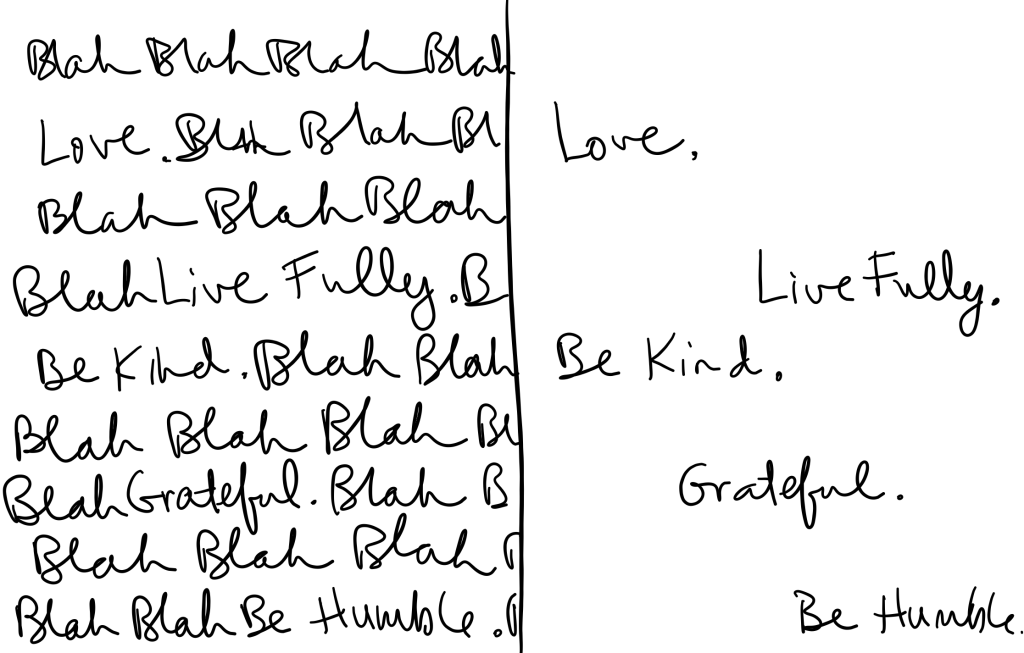 Blah Blah Blah Blah
Love. Blah Blah Bl
Blah Blah Blah
Blah Live Fully. B
Be Kind. Blah Blah
Blah Blah Blah Bl
Blah Grateful. Blah B
Blah Blah Blah B
Blah Blah Be Humble. B
Love.
Live Fully.
Be Kind.
Grateful.
Be Humble.